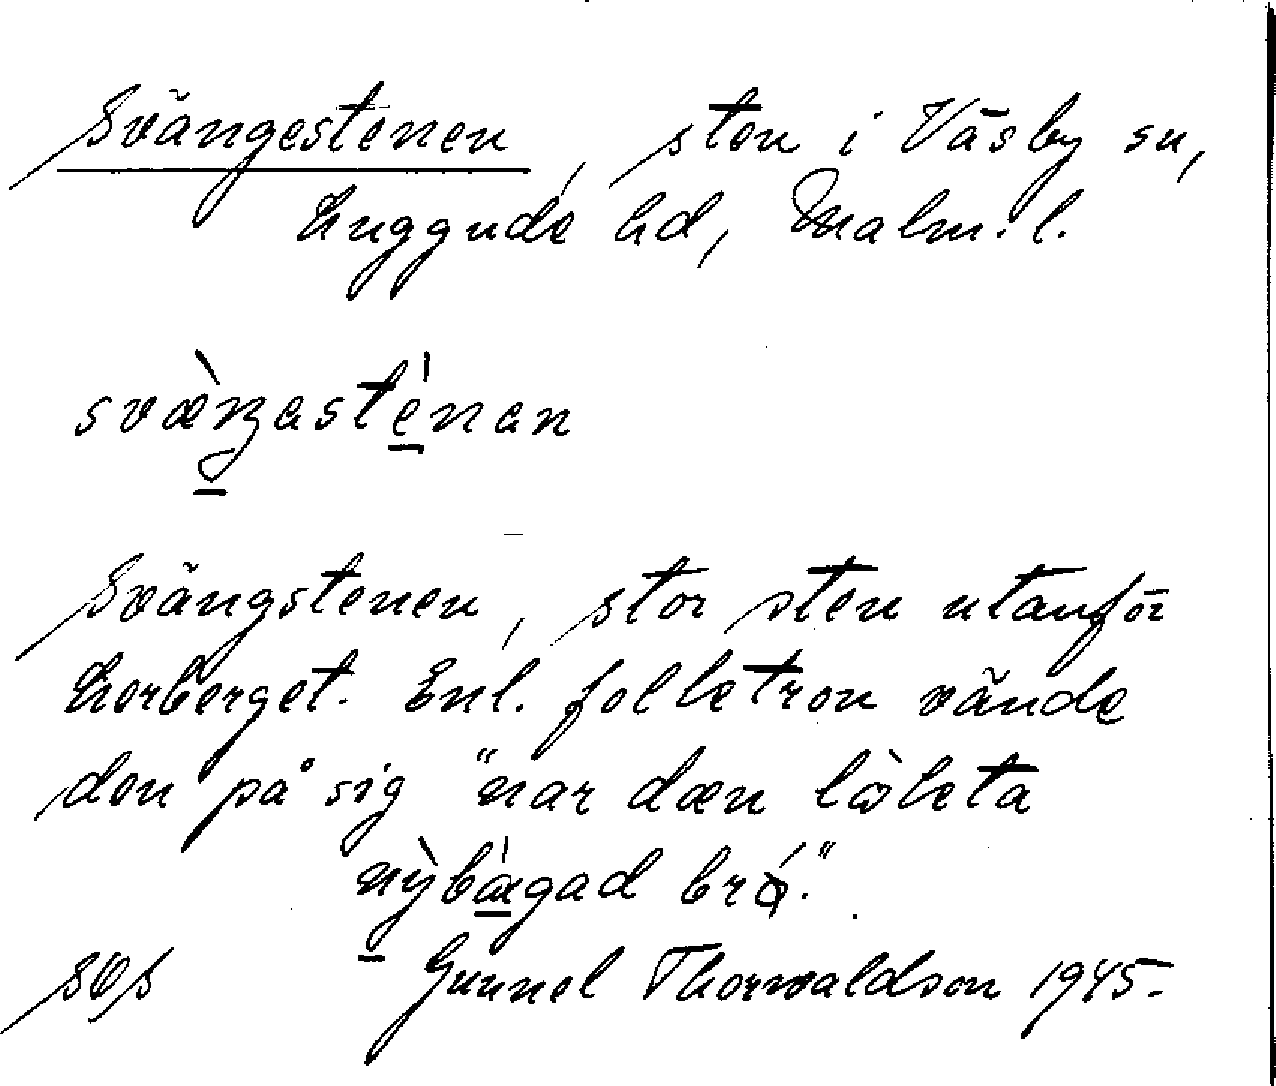 Svängestenen, sten i Väsby sn,
Luggude hd, Malm. l.
svæ̀ŋastе́nan
Svängstenen, stor sten utanför
Lerberget. Enl. folketron vände
den på sig "nar dæn lòkta
nỳbágad brǿ."
Gunnel Thorwaldson 1945.